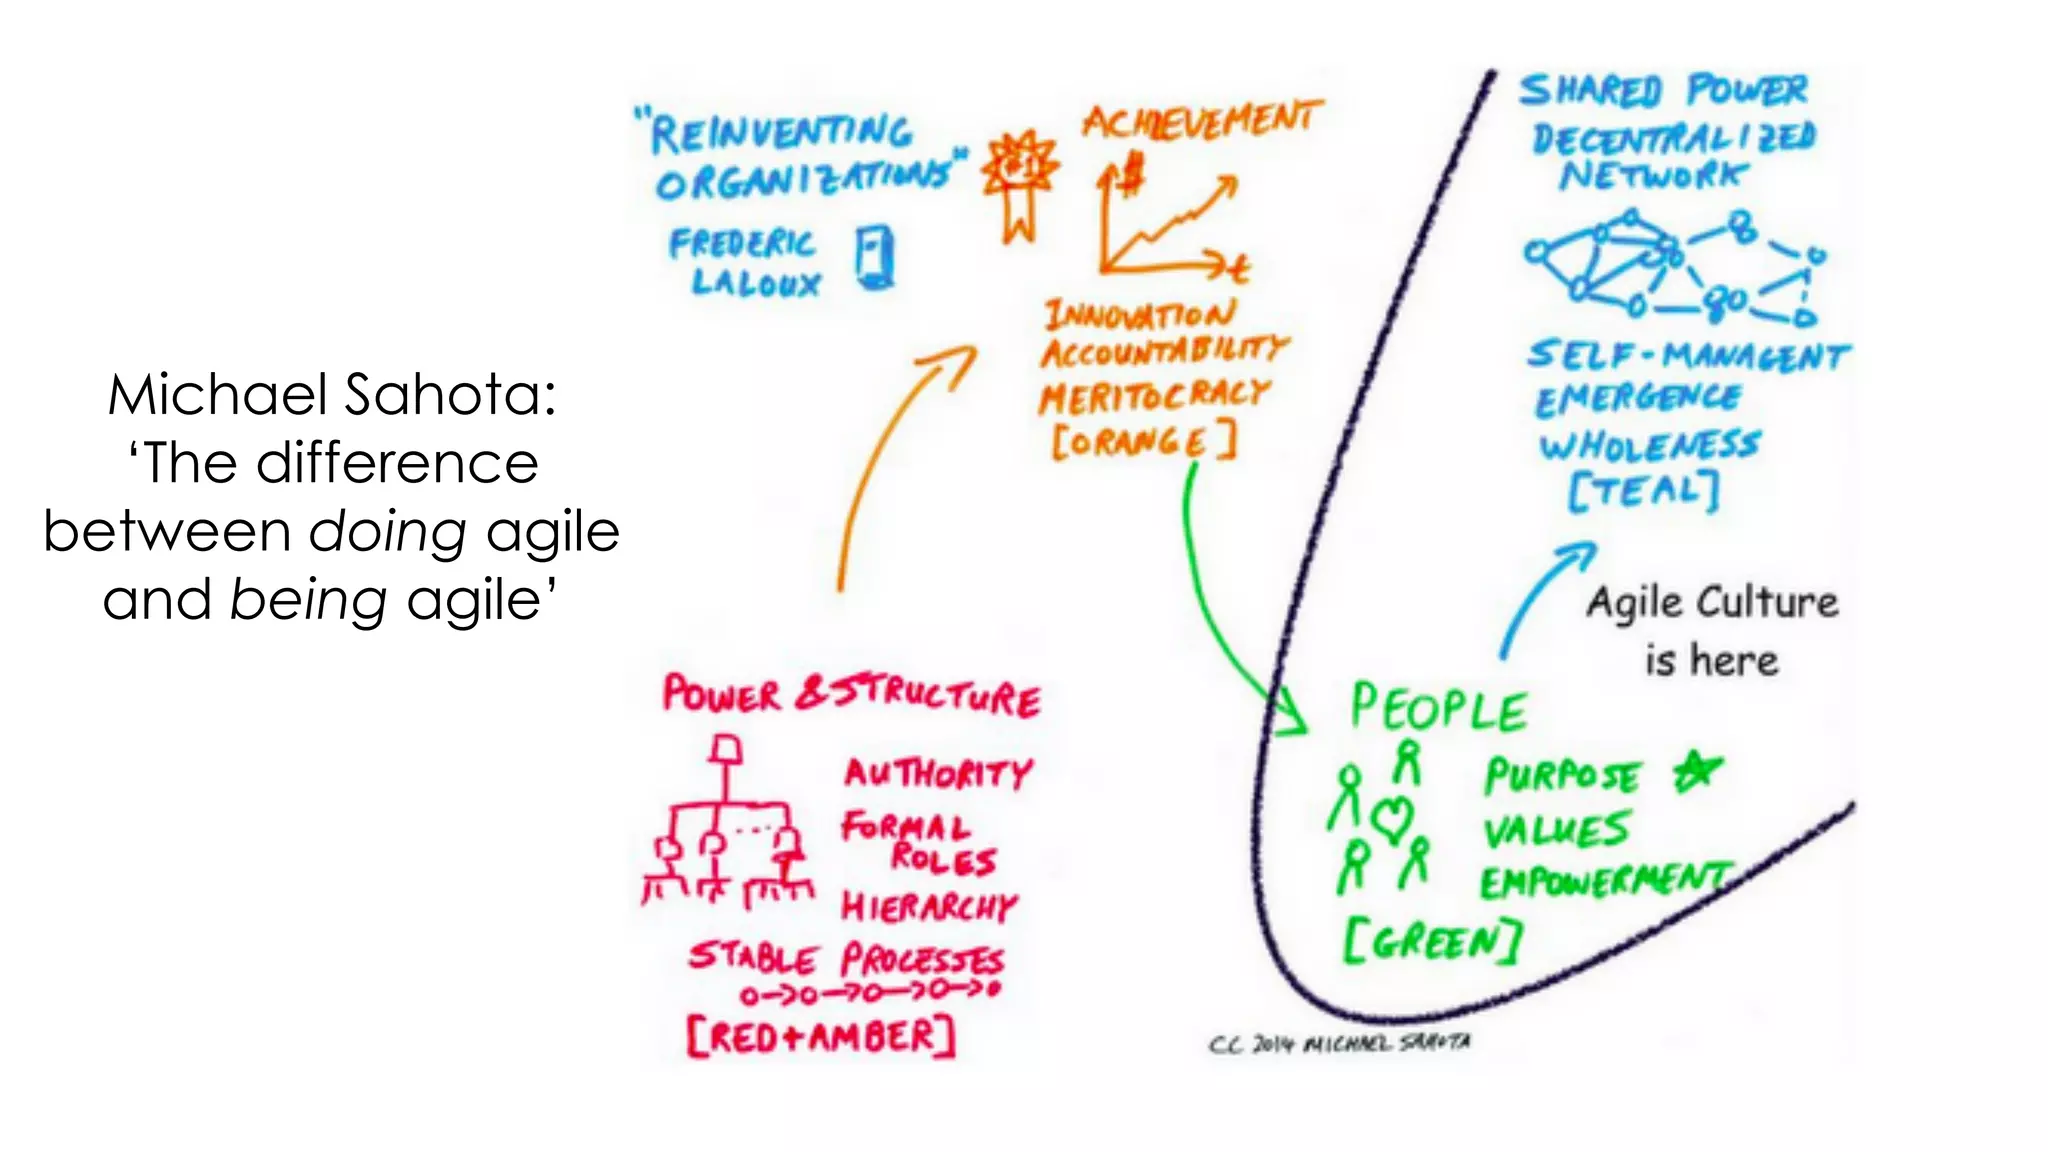 Michael Sahota:
‘The difference
between doing agile
and being agile’
"REINVENTING
ORGANIZATIONS"
FREDERIC
LALOUX
#1
ACHIEVEMENT
$
t
INNOVATION
ACCOUNTABILITY
MERITOCRACY
[ORANGE]
SHARED POWER
DECENTRALIZED
NETWORK
SELF-MANAGENT
EMERGENCE
WHOLENESS
[TEAL]
Agile Culture
is here
POWER & STRUCTURE
AUTHORITY
FORMAL
ROLES
HIERARCHY
STABLE PROCESSES
[RED+AMBER]
PEOPLE
PURPOSE
VALUES
EMPOWERMENT
[GREEN]
CC 2014 MICHAEL SAHOTA